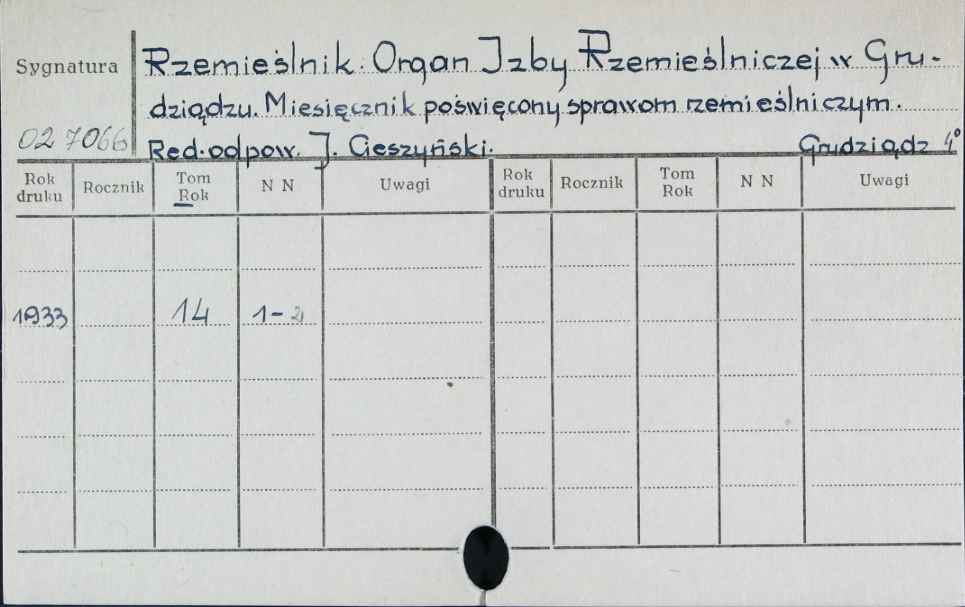 Sygnatura
Rzemieślnik. Organ Izby Rzemieślniczej w Gru-
dziądzu. Miesięcznik poświęcony sprawom rzemieślniczym.
02 7066
Red. odpow. J. Cieszyński. Grudziądz 4°
Rok druku Rocznik Tom Rok N N Uwagi Rok druku Rocznik Tom Rok N N Uwagi
1933 14 1-